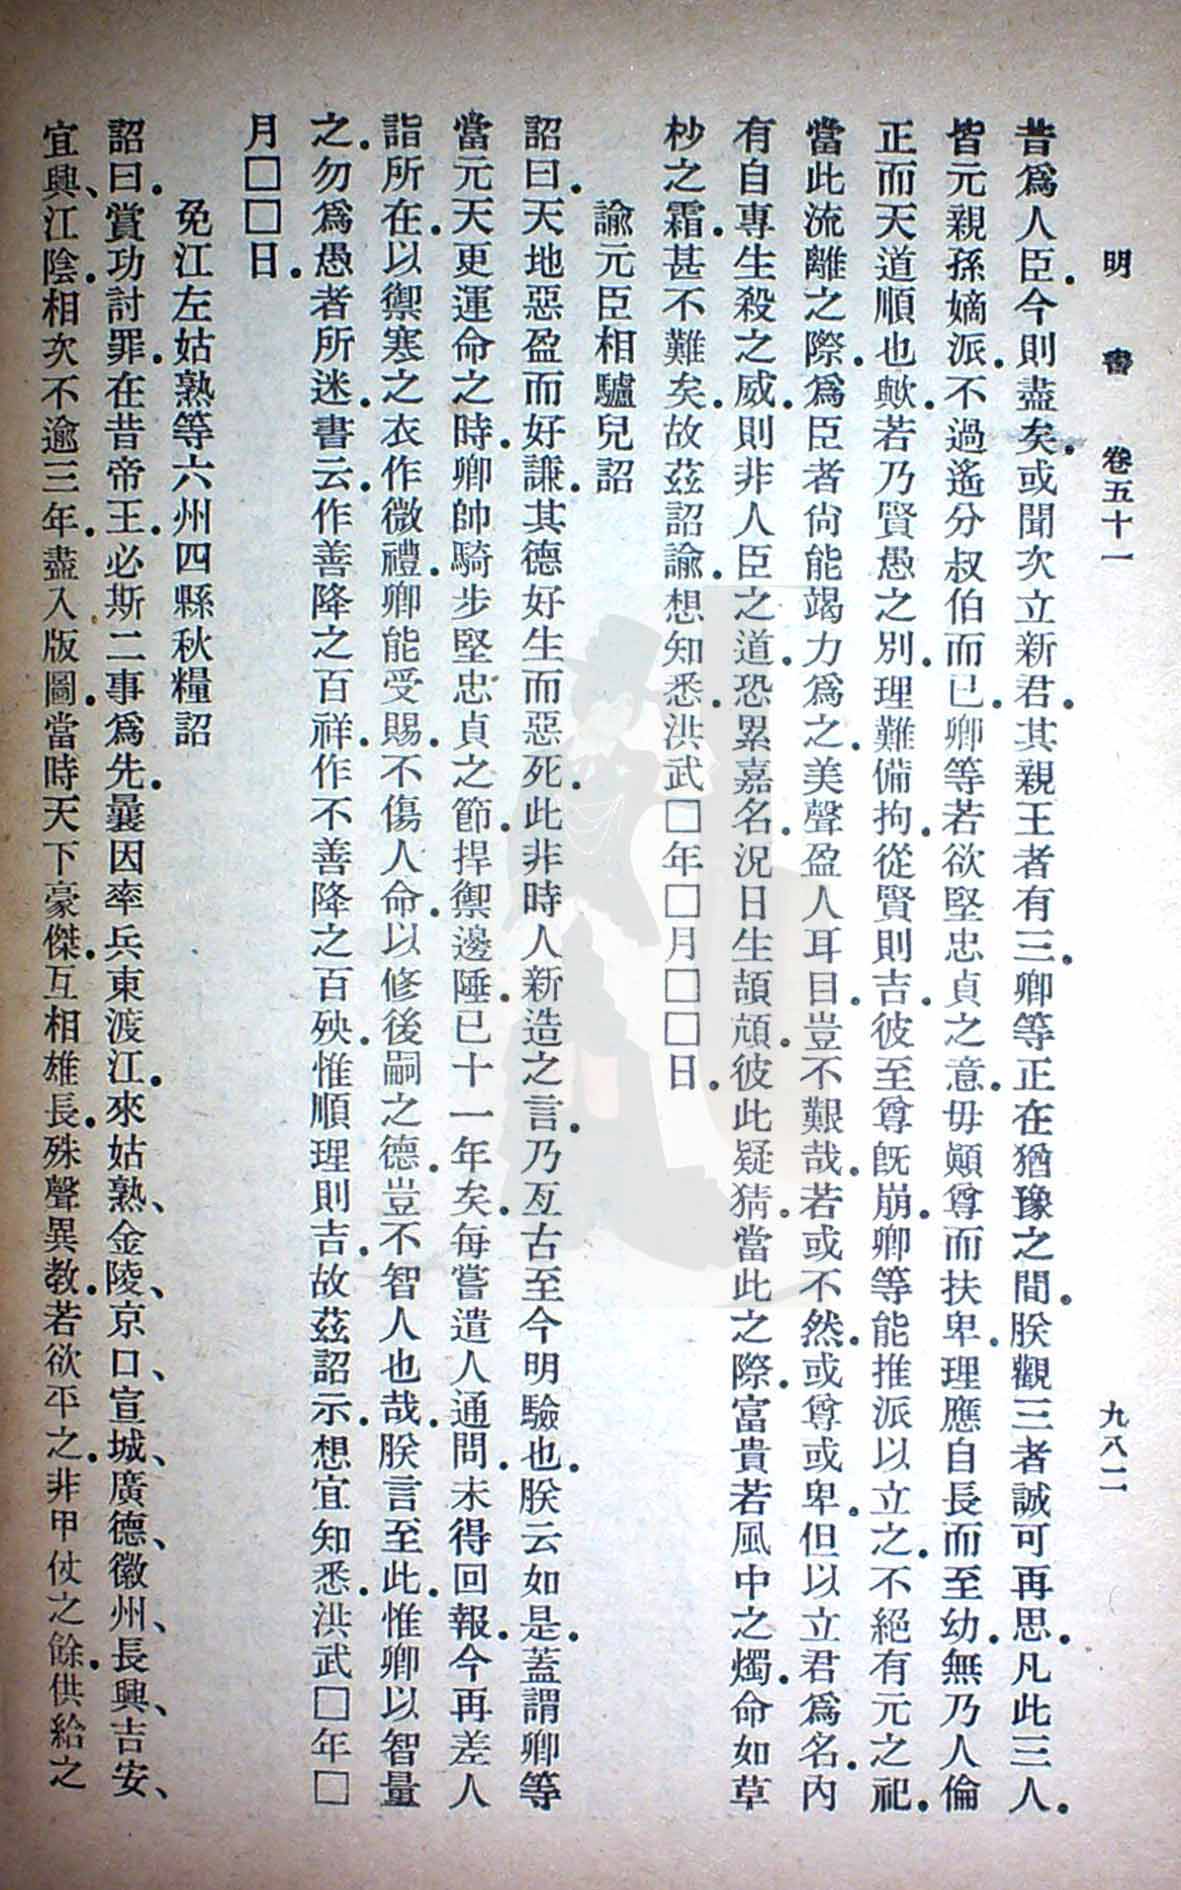 明書　卷五十一　九八二
昔爲人臣．今則盡矣．或聞次立新君．其親王者有三．卿等正在猶豫之間．朕觀三者誠可再思．凡此三人．
皆元親孫嫡派．不過遙分叔伯而已．卿等若欲堅忠貞之意．毋顚尊而扶卑．理應自長而至幼．無乃人倫
正而天道順也歟．若乃賢愚之別．理難備拘．從賢則吉．彼至尊旣崩．卿等能推派以立之．不絕有元之祀．
當此流離之際．爲臣者尙能竭力爲之．美聲盈人耳目．豈不艱哉．若或不然．或尊或卑．但以立君爲名．內
有自專生殺之威．則非人臣之道．恐累嘉名．況日生頡頏．彼此疑猜．當此之際．富貴若風中之燭．命如草
杪之霜．甚不難矣．故茲詔諭．想知悉．洪武□年□月□□日．
諭元臣相驢兒詔
詔曰．天地惡盈而好謙．其德好生而惡死．此非時人新造之言．乃亙古至今明驗也．朕云如是．蓋謂卿等
當元天更運命之時．卿帥騎步堅忠貞之節．捍禦邊陲．已十一年矣．每嘗遣人通問．未得回報．今再差人
詣所在．以禦寒之衣．作微禮．卿能受賜．不傷人命．以修後嗣之德．豈不智人也哉．朕言至此．惟卿以智量
之．勿爲愚者所迷．書云．作善降之百祥．作不善降之百殃．惟順理則吉．故茲詔示．想宜知悉．洪武□年□
月□□日．
免江左姑熟等六州四縣秋糧詔
詔曰．賞功討罪．在昔帝王．必斯二事爲先．曩因率兵東渡江．來姑熟、金陵、京口、宣城、廣德、徽州、長興、吉安、
宜興、江陰．相次不逾三年．盡入版圖．當時天下豪傑．互相雄長．殊聲異教．若欲平之．非甲仗之餘．供給之